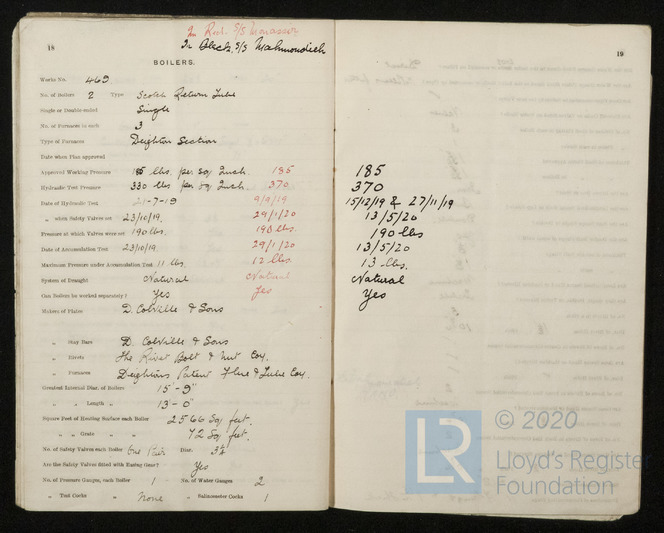 18
In Red. S/S Monassir
In Black. S/S Mahmoudieh
BOILERS.
Works No. 469
No. of Boilers 2 Type Scotch Return Tube
Single or Double-ended Single
No. of Furnaces in each 3
Type of Furnaces Deighton Section
Date when Plan approved
Approved Working Pressure 185 lbs. per sq Inch. 185
Hydraulic Test Pressure 330 lbs per sq Inch. 370
Date of Hydraulic Test 21-7-19 9/9/19
„ when Safety Valves set 23/10/19. 29/1/20
Pressure at which Valves were set 190 lbs. 190 lbs.
Date of Accumulation Test 23/10/19. 29/1/20
Maximum Pressure under Accumulation Test 11 lbs. 12 lbs.
System of Draught Natural Natural
Can Boilers be worked separately? Yes Yes
Makers of Plates D. Colville & Sons
„ Stay Bars D. Colville & Sons
„ Rivets The Rivet Bolt & Nut Coy.
„ Furnaces Deightons Patent Flue & Tube Coy.
Greatest Internal Diar. of Boilers 15'-9"
„ „ Length „ 13'-0"
Square Feet of Heating Surface each Boiler 2566 Sq feet.
„ „ Grate „ „ 72 Sq feet.
No. of Safety Valves each Boiler One Pair Diar. 3½
Are the Safety Valves fitted with Easing Gear? Yes
No. of Pressure Gauges, each Boiler 1 No. of Water Gauges 2
„ Test Cocks „ None „ Salinometer Cocks 1
19
185
370
15/12/19 & 27/11/19
13/5/20
190 lbs
13/5/20
13 lbs.
Natural
Yes
LR © 2020
Lloyd's Register
Foundation